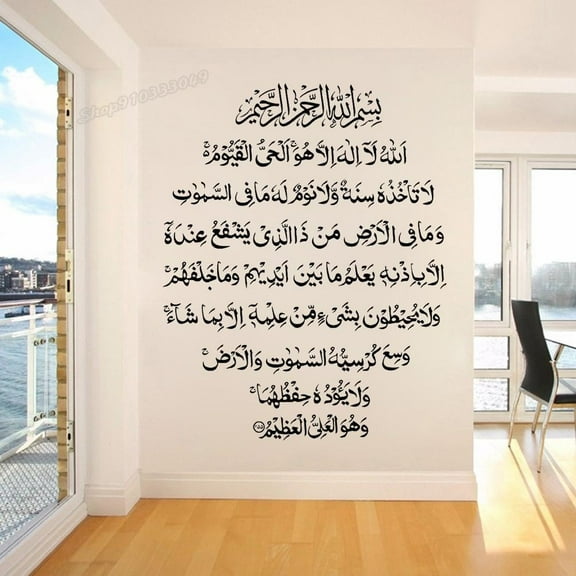 Shop910333049
بِسْمِ اللهِ الرَّحْمٰنِ الرَّحِيْمِ
اَللهُ لَآ اِلٰهَ اِلَّا هُوَ ۚ اَلْحَىُّ الْقَيُّوْمُ ۚ
لَا تَاْخُذُهٗ سِنَةٌ وَّلَا نَوْمٌ لَهٗ مَا فِى السَّمٰوٰتِ
وَمَا فِى الْاَرْضِ مَنْ ذَا الَّذِىْ يَشْفَعُ عِنْدَهٗٓ
اِلَّا بِاِذْنِهٖ يَعْلَمُ مَا بَيْنَ اَيْدِيْهِمْ وَمَا خَلْفَهُمْ ۚ
وَلَا يُحِيْطُوْنَ بِشَىْءٍ مِّنْ عِلْمِهٖٓ اِلَّا بِمَا شَآءَ ۚ
وَسِعَ كُرْسِيُّهُ السَّمٰوٰتِ وَالْاَرْضَ ۚ
وَلَا يَئُوْدُهٗ حِفْظُهُمَا ۚ
وَهُوَ الْعَلِىُّ الْعَظِيْمُ ﴿۲۵۵﴾